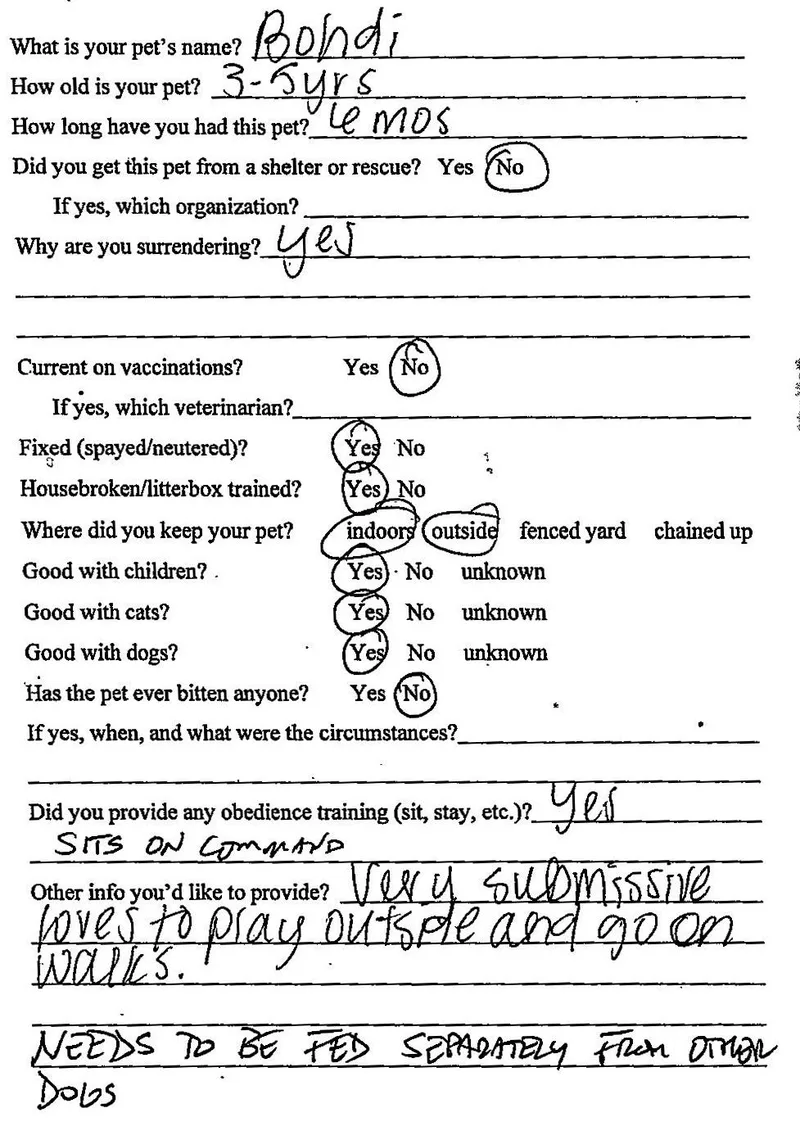 What is your pet's name? Bondi
How old is your pet? 3-5yrs
How long have you had this pet? 6 mos
Did you get this pet from a shelter or rescue? Yes No
If yes, which organization?
Why are you surrendering? yes
Current on vaccinations? Yes No
If yes, which veterinarian?
Fixed (spayed/neutered)? Yes No
Housebroken/litterbox trained? Yes No
Where did you keep your pet? indoors outside fenced yard chained up
Good with children? Yes No unknown
Good with cats? Yes No unknown
Good with dogs? Yes No unknown
Has the pet ever bitten anyone? Yes No
If yes, when, and what were the circumstances?
Did you provide any obedience training (sit, stay, etc.)? Yes
SITS ON COMMAND
Other info you'd like to provide? Very submissive
loves to play outside and go on
walks.
NEEDS TO BE FED SEPARATELY FROM OTHER
DOGS